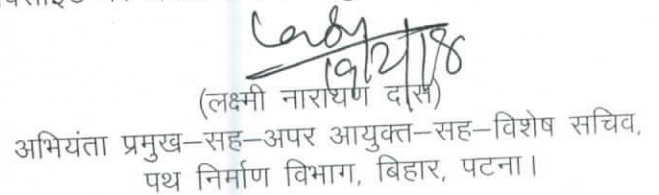 19/2/18
(लक्ष्मी नारायण दास)
अभियंता प्रमुख–सह–अपर आयुक्त–सह–विशेष सचिव,
पथ निर्माण विभाग, बिहार, पटना।